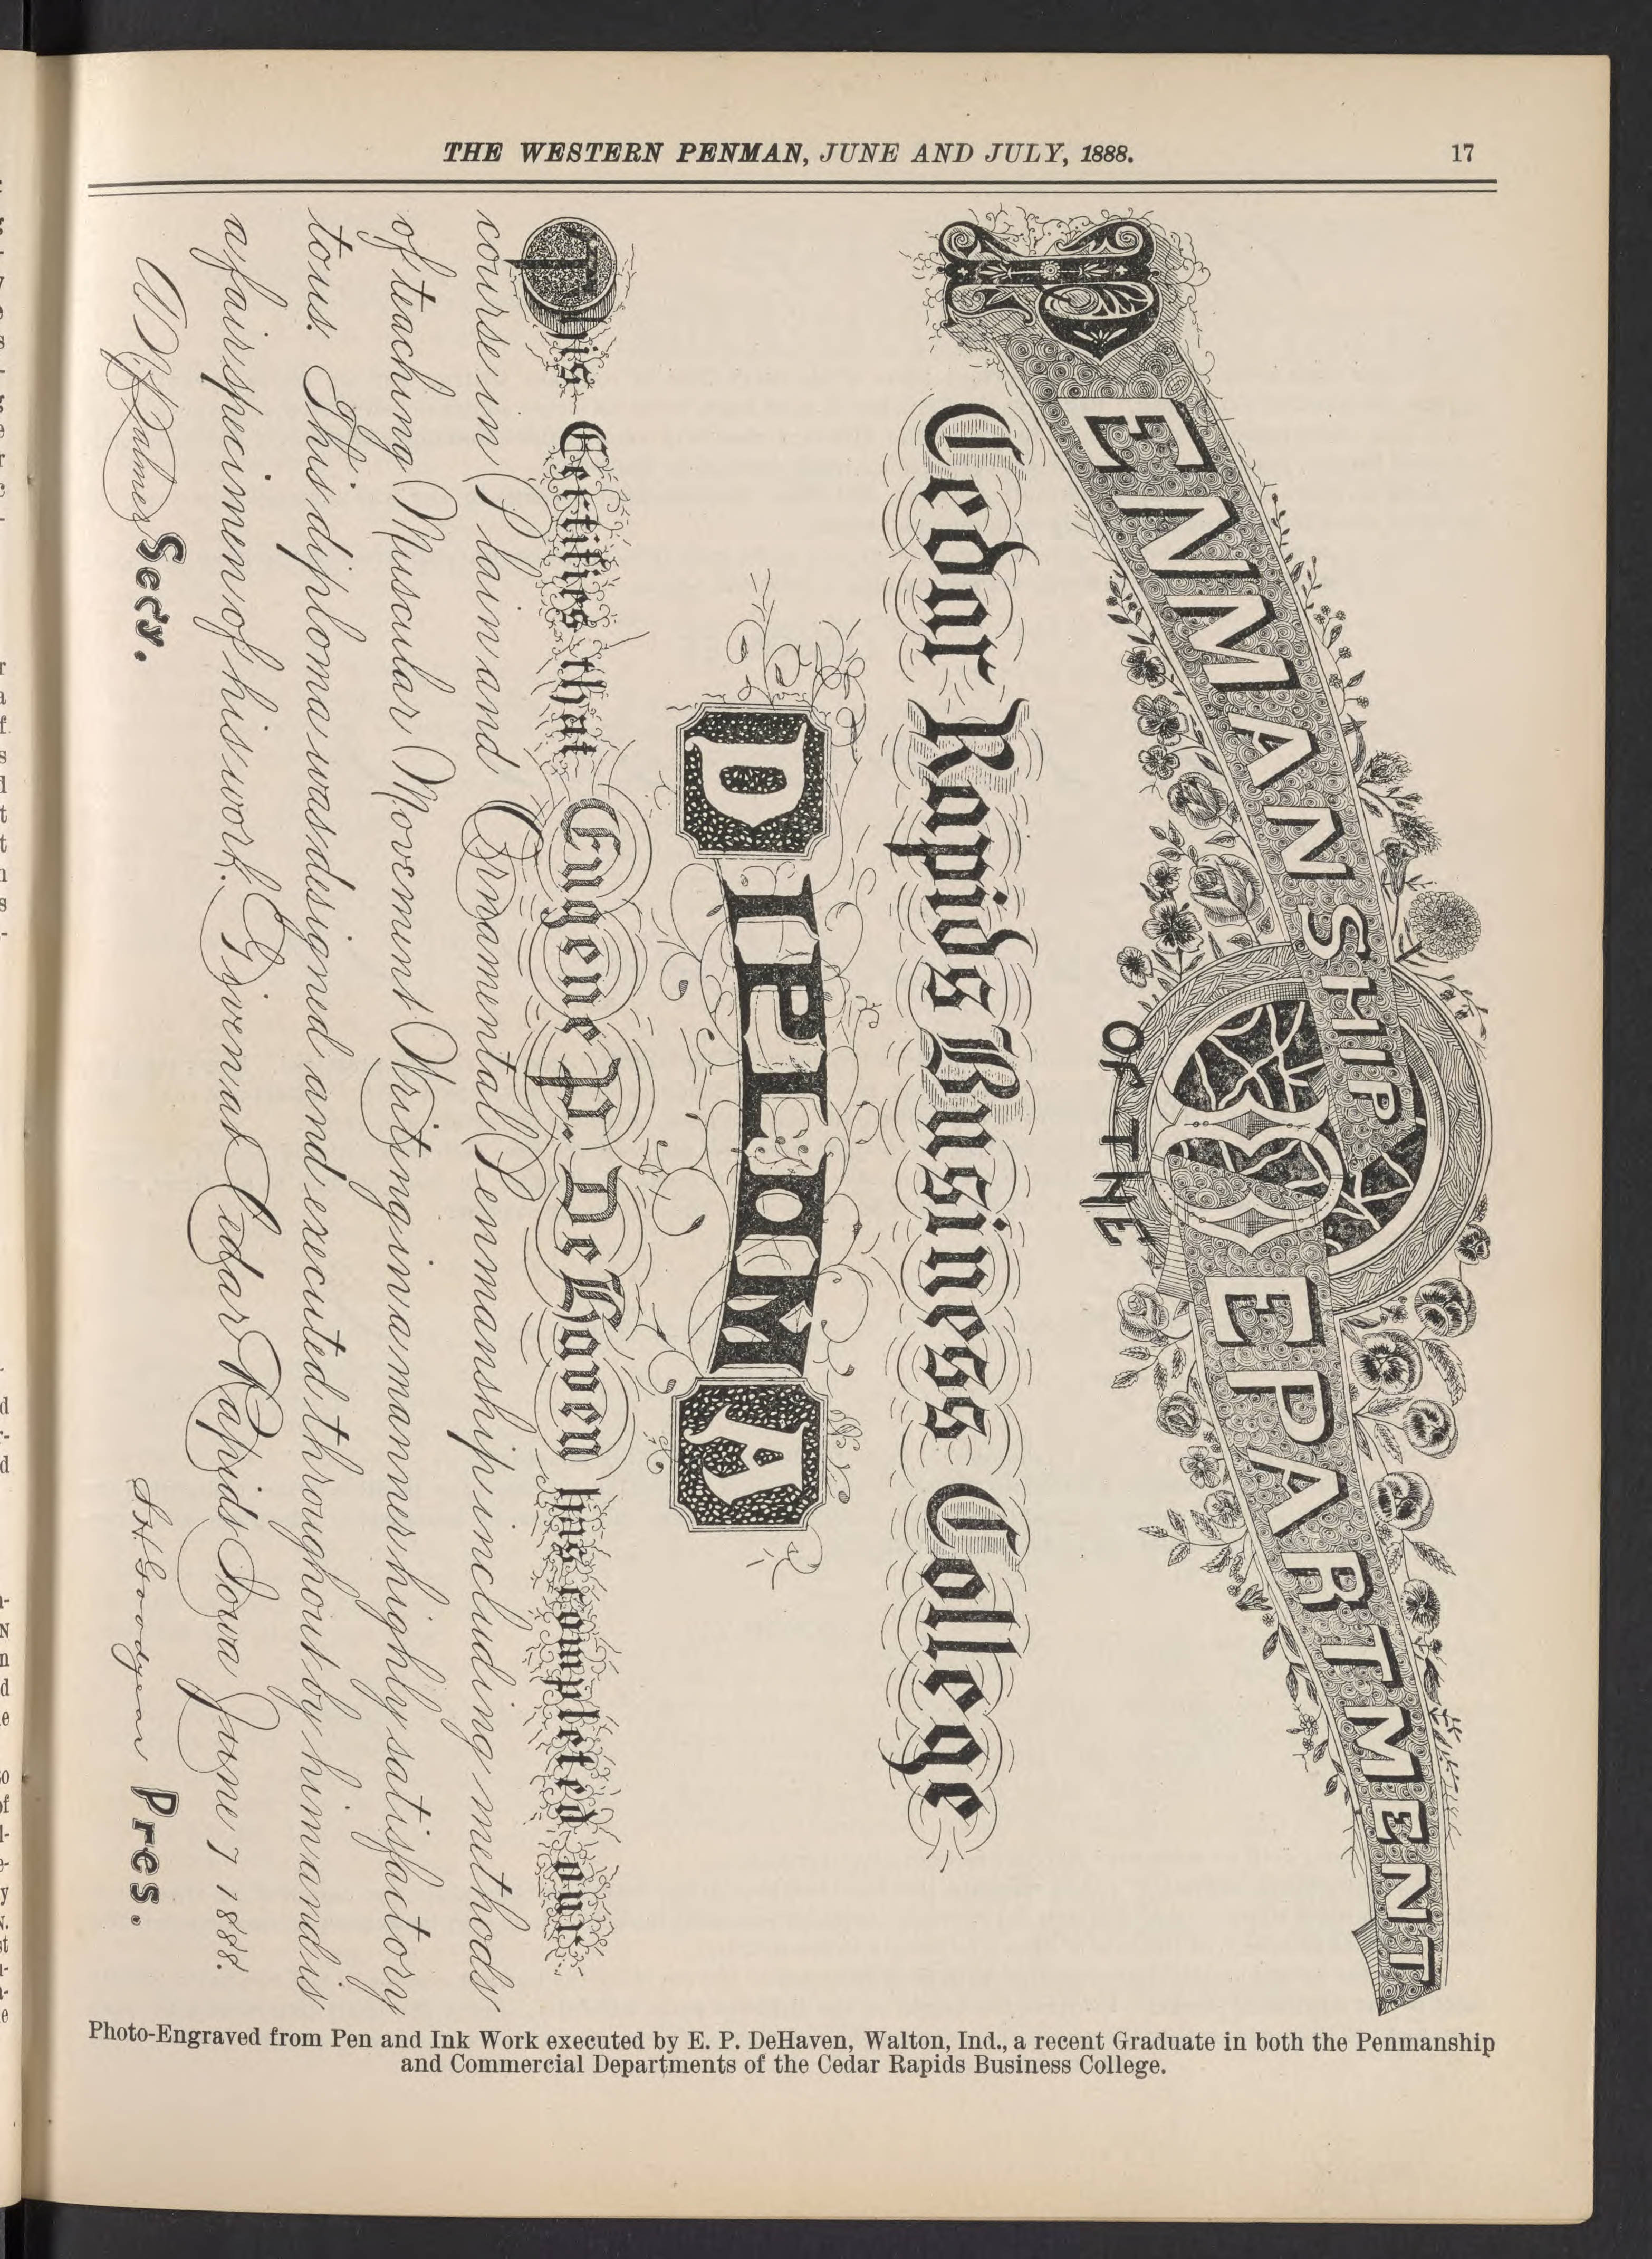 THE WESTERN PENMAN, JUNE AND JULY, 1888. 17
PENMANSHIP DEPARTMENT
OF THE
Cedar Rapids Business College
DIPLOMA
This Certifies that Eugene P. DeHaven has completed our
course in Plain and Ornamental Penmanship including methods
of teaching Muscular Movement Writing in a manner highly satisfactory
to us. This diploma was designed and executed throughout by him and is
a fair specimen of his work. Given at Cedar Rapids Iowa June 7 1888.
A N Palmer Sec'y. S H Goodyear Pres.
Photo-Engraved from Pen and Ink Work executed by E. P. DeHaven, Walton, Ind., a recent Graduate in both the Penmanship
and Commercial Departments of the Cedar Rapids Business College.